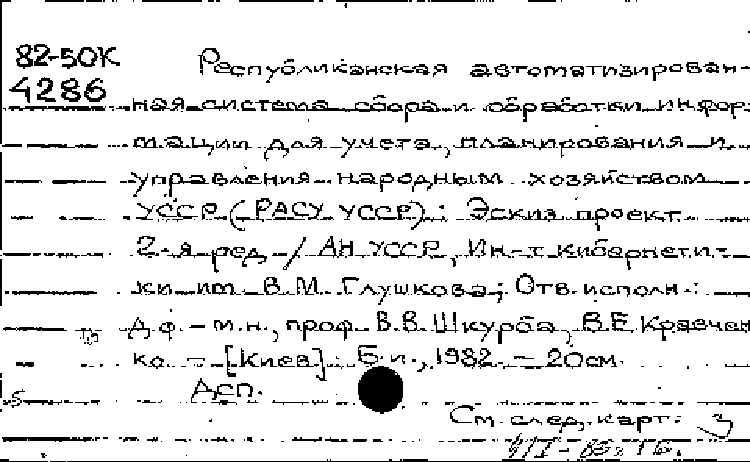 82-50К
4286
Республиканская автоматизирован-
ная система сбора и обработки инфор
мации для учета, планирования и
управления народным хозяйством
УССР (РАСУ УССР): Эскиз. проект.
2-я ред. - / АН УССР, Ин-т кибернети-
ки им. В.М. Глушкова; Отв. исполн.:
д.ф.-м.н., проф. В.В. Шкурба, В.Е. Кравчен
ко. - [Киев]: Б.и., 1982. - 20см.
Асп.
См. след. карт. 3